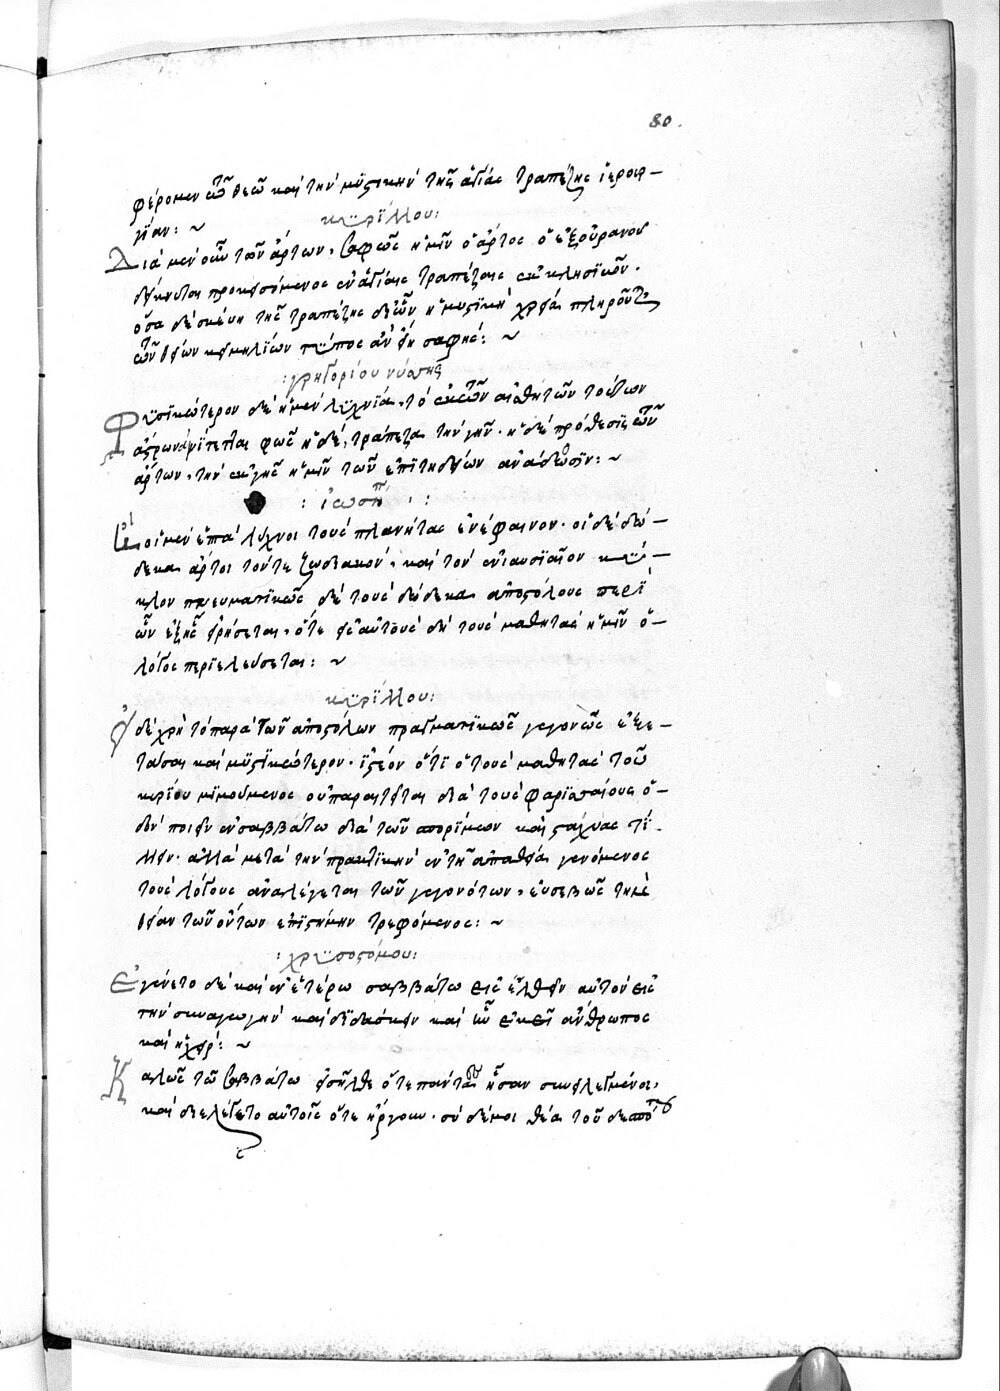 80.
φέρομεν τῷ θεῷ καὶ τὴν μυστικὴν τῆς ἁγίας τραπέζης ἱερουρ-
γίαν: ~
κυρίλλου:
Διὰ μὲν οὖν τῶν ἄρτων, σαφῶς ἡμῖν ὁ ἄρτος ὁ ἐξ οὐρανοῦ
δείκνυται προκείμενος ἐν ἁγίαις τραπέζαις ἐκκλησιῶν.
ὅσα δὲ σκεύη τῆς τραπέζης δι' ὧν ἡ μυστικὴ χρεία πληροῦται
τῶν θείων κειμηλίων τύπος ἂν εἴη σαφής: ~
: γρηγορίου νύσης
Φυσικώτερον δὲ ἡ μὲν λυχνία, τὸ ἐκ τῶν αἰσθητῶν τούτων
ἄστρων αἰνίττεται φῶς ἡ δὲ, τράπεζα τὴν γῆν. ἡ δὲ πρόθεσις τῶν
ἄρτων, τὴν ἐκ γῆς ἡμῖν τῶν ἐπιτηδείων ἀνάδοσιν: ~
: ἰωσήπ : :
οἱ μὲν ἑπτὰ λύχνοι τοὺς πλανήτας ἐνέφαινον. οἱ δὲ δώ-
δεκα ἄρτοι τόν τε ζωδιακὸν, καὶ τὸν ἐνιαυσιαῖον κύ-
κλον πνευματικῶς δὲ τοὺς δώδεκα ἀποστόλους περὶ
ὧν ἑξῆς εἰρήσεται, ὅτε ἐπ' αὐτοὺς δὴ τοὺς μαθητὰς ἡμῖν ὁ-
λόγος περιελεύσεται: ~
κυρίλλου:
Εἰ δὲ χρὴ τὸ παρὰ τῶν ἀποστόλων πραγματικῶς γεγονὸς ἐξε-
τάσαι καὶ μυστικώτερον. ἰστέον ὅτι ὁ τοὺς μαθητὰς τοῦ
κυρίου μιμούμενος οὐ παραιτεῖται διὰ τοὺς φαρισαίους ὁ-
δὸν ποιεῖν ἐν σαββάτω διὰ τῶν σπορίμων καὶ στάχυας τί-
λλειν. ἀλλὰ μετὰ τὴν πρακτικὴν ἐν τῇ ἀπαθείᾳ γενόμενος
τοὺς λόγους ἀναλέγεται τῶν γεγονότων, εὐσεβῶς τὴν
θείαν τῶν ὄντων ἐπιστήμην τρεφόμενος: ~
: χρυσοστόμου:
Ἐγένετο δὲ καὶ ἐν ἑτέρω σαββάτω εἰσελθεῖν αὐτὸν εἰς
τὴν συναγωγὴν καὶ διδάσκειν καὶ ἦν ἐκεῖ ἄνθρωπος
καὶ ἡ χεὶρ: ~
Καλῶς τῶ σαββάτω εἰσῆλθε ὅτε πάντες ἦσαν συνειλεγμένοι,
καὶ διελέγετο αὐτοῖς ὅτε ἤργουν. σὺ δέ μοι θέα τοῦ δεσπότου